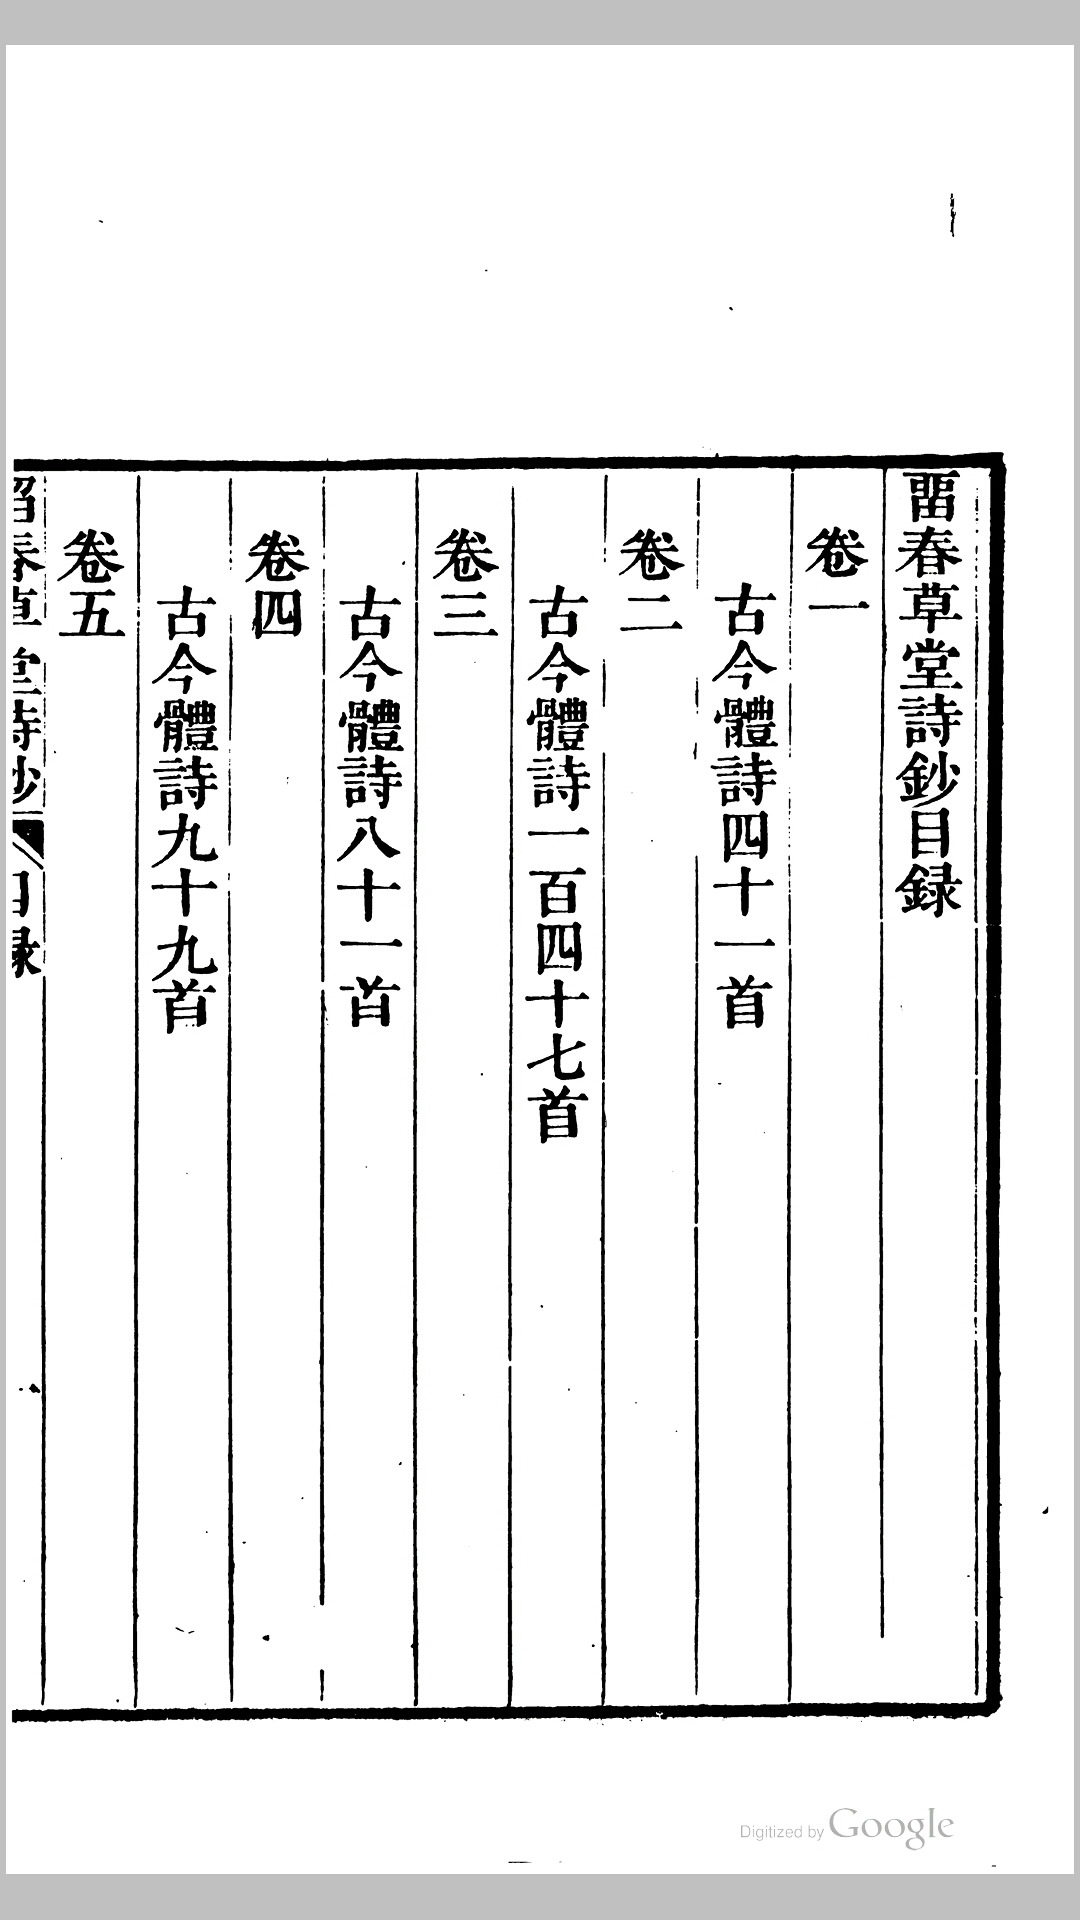 畱春草堂詩鈔目録
卷一
古今體詩四十一首
卷二
古今體詩一百四十七首
卷三
古今體詩八十一首
卷四
古今體詩九十九首
卷五
畱春草堂詩鈔 目録
Digitized by Google